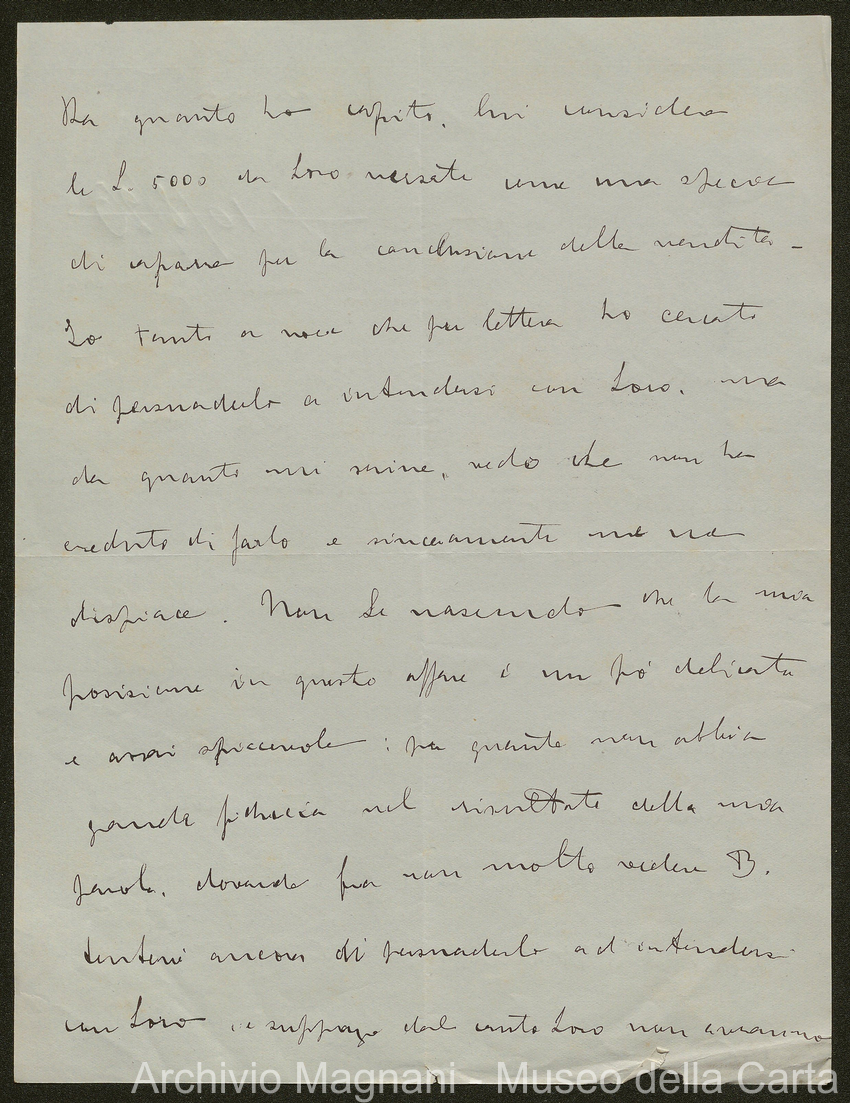 Da quanto ho capito, lui considera
le L. 5000 da Loro versate come una specie
di caparra per la conclusione della vendita -
Io tanto a voce che per lettera ho cercato
di persuaderlo a intendersi con Loro, ma
da quanto mi scrive, vedo che non ha
creduto di farlo e sinceramente me ne
dispiace. Non Le nascondo che la mia
posizione in questo affare è un pò delicata
e assai spiacevole: per quanto non abbia
grande fiducia nel risultato della mia
parola, dovendo fra non molto vedere B.
tenterò ancora di persuaderlo ad intendersi
con Loro e suppongo dal canto Loro non avranno
Archivio Magnani - Museo della Carta